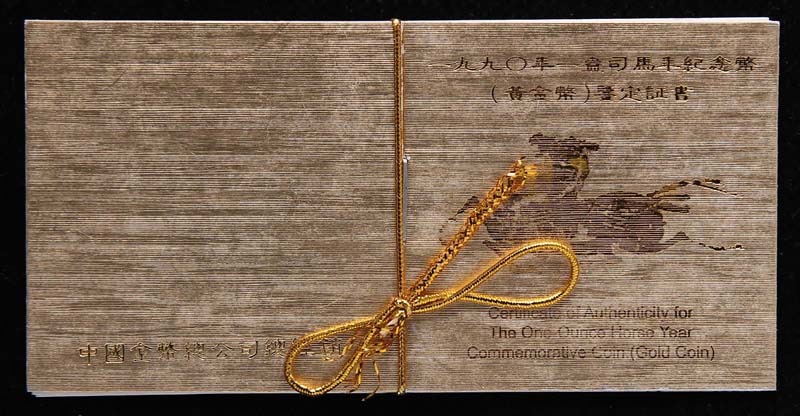 一九九〇年一盎司馬年紀念幣
(黃金幣)鑒定証書
Certificate of Authenticity for
The One-Ounce Horse Year
Commemorative Coin (Gold Coin)
中國金幣總公司總經銷